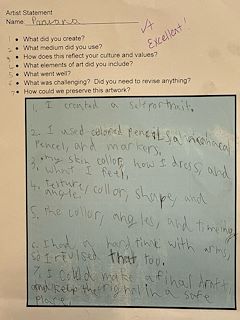 Artist Statement
Name:
√+
Excellent!
1 • What did you create?
2 • What medium did you use?
3 • How does this reflect your culture and values?
4 • What elements of art did you include?
5 • What went well?
6 • What was challenging? Did you need to revise anything?
7 • How could we preserve this artwork?
1. I created a selfportrait.
2. I used colored pencils, a mechanical
pencil, and markers,
3. my skin collor, how I dress, and
what I feel,
4. texture, collor, shape, and
angle.
5. the collor, angles, and timeing
6. I had a hard time with arms,
so I revised that too.
7. I Could make a final draft
and keep the original in a safe
place,